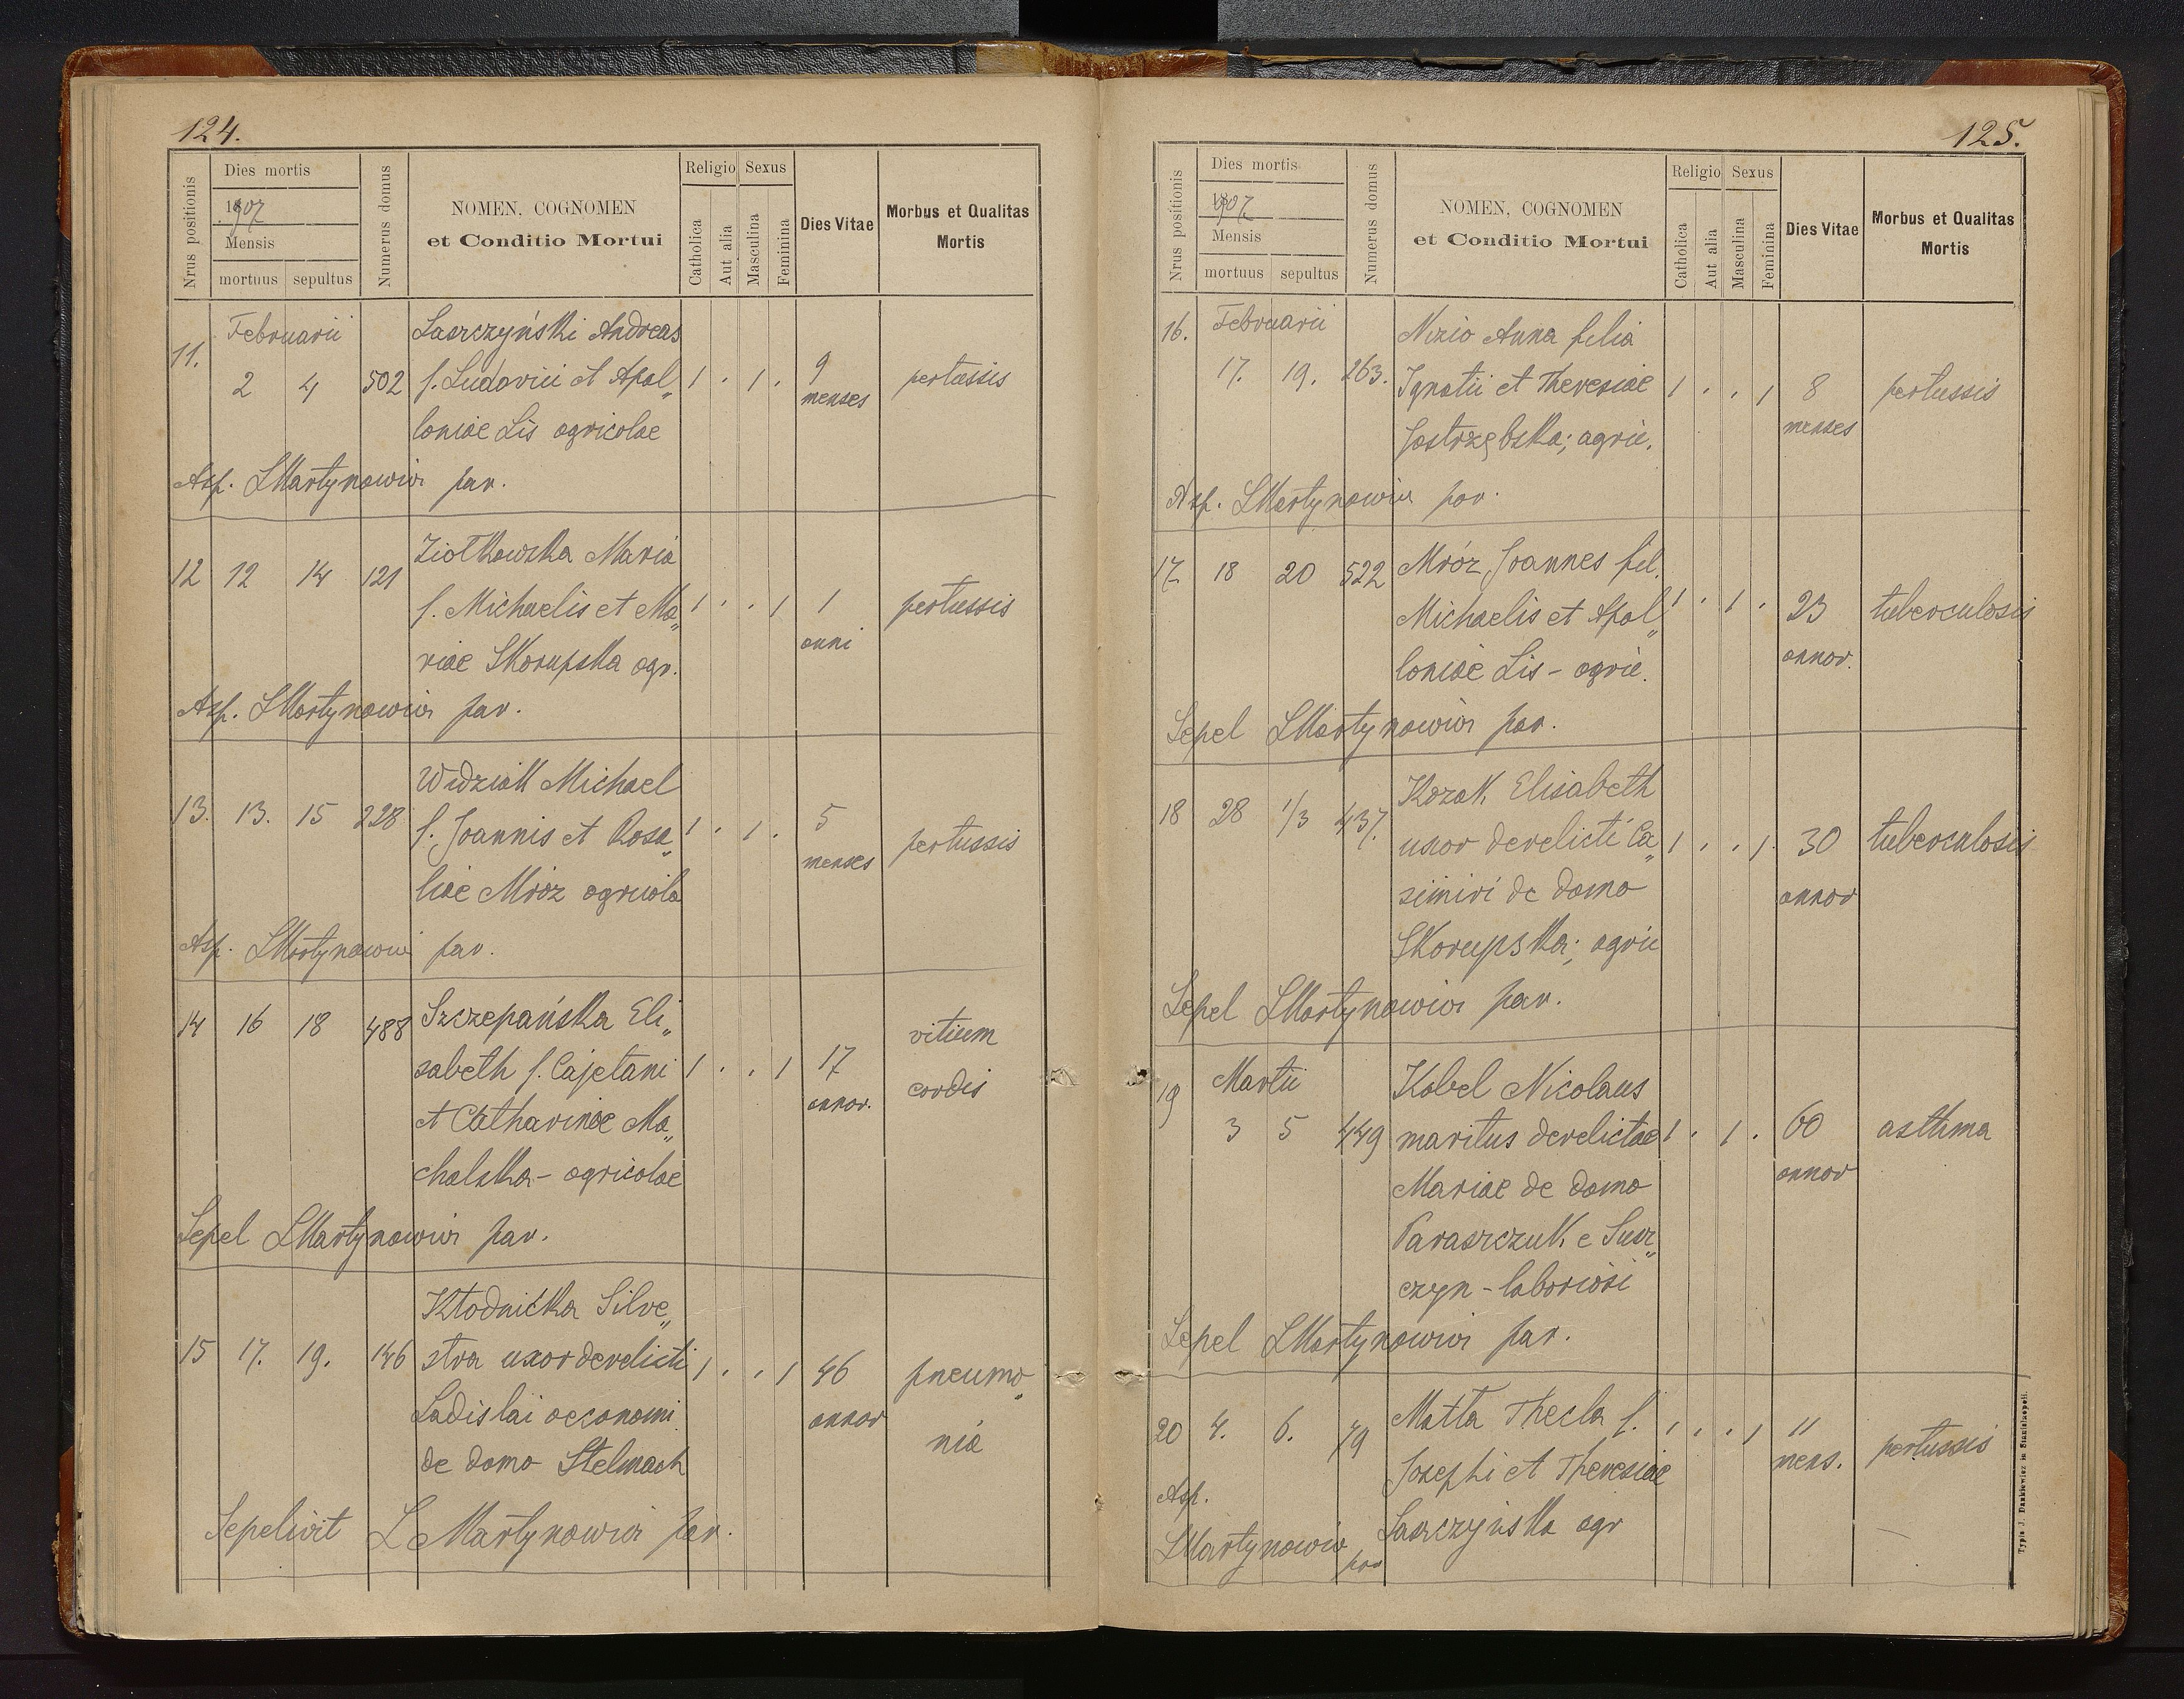 124.
Nrus positionis
Dies mortis
1907
Mensis
mortuus sepultus
Numerus domus
NOMEN, COGNOMEN
et Conditio Mortui
Religio Sexus
Catholica
Aut alia
Masculina
Feminina
Dies Vitae
Morbus et Qualitas
Mortis
Februarii Laszczyński Andreas
11. 2 4 502 f. Ludovici et Apol„ 1 . 1 . 9 menses pertussis
loniae Lis agricolae
Asp. LMartynowicz par.
Ziółkowska Maria
12 12 14 121 f. Michaelis et Ma„ 1 . . 1 1 anni pertussis
riae Skorupska agr.
Asp. LMartynowicz par.
Widziak Michael
13. 13. 15 228 f. Joannis et Rosa„ 1 . 1 . 5 menses pertussis
liae Mróz agricola
Asp. LMartynowicz par.
14 16 18 488 Szczepańska Eli„ vitium
sabeth f. Cajetani 1 . . 1 17 annor. cordis
et Catharinae Ma„
chalska - agricolae
Sepel LMartynowicz par.
Kłodnicka Silve„
15 17. 19. 146 stra uxor derelicti 1 . . 1 46 annor pneumo„
Ladislai oeconomi nia
de domo Stelmach
Sepelivit L Martynowicz par.
125.
Nrus positionis
Dies mortis
1907
Mensis
mortuus sepultus
Numerus domus
NOMEN, COGNOMEN
et Conditio Mortui
Religio Sexus
Catholica
Aut alia
Masculina
Feminina
Dies Vitae
Morbus et Qualitas
Mortis
16. Februarii Nizio Anna filia
17. 19. 263. Ignatii et Theresiae 1 . . 1 8 menses pertussis
Jastrzębska; agric.
Asp. LMartynowicz par.
17 18 20 522 Mróz Joannes fil.
Michaelis et Apol„ 1 . 1 . 23 annor. tuberculosis
loniae Lis - agric.
Sepel LMartynowicz par.
Kozak Elisabeth
18 28 1/3 437. uxor derelicti Ca„ 1 . . 1 30 annor tuberculosis
simiri de domo
Skorupska; agric
Sepel LMartynowicz par.
19 Martii Kobel Nicolaus
3 5 449 maritus derelictae 1 . 1 . 60 annor asthma
Mariae de domo
Paraszczuk e Susz„
czyn - laboriosi
Sepel LMartynowicz par.
20 4. 6. 79 Matta Thecla f. 1 . . 1 11 mens. pertussis
Asp. Josephi et Theresiae
LMartynowicz par Laszczyńska agr
Typis J. Dankiewicz in Stanislaopoli.